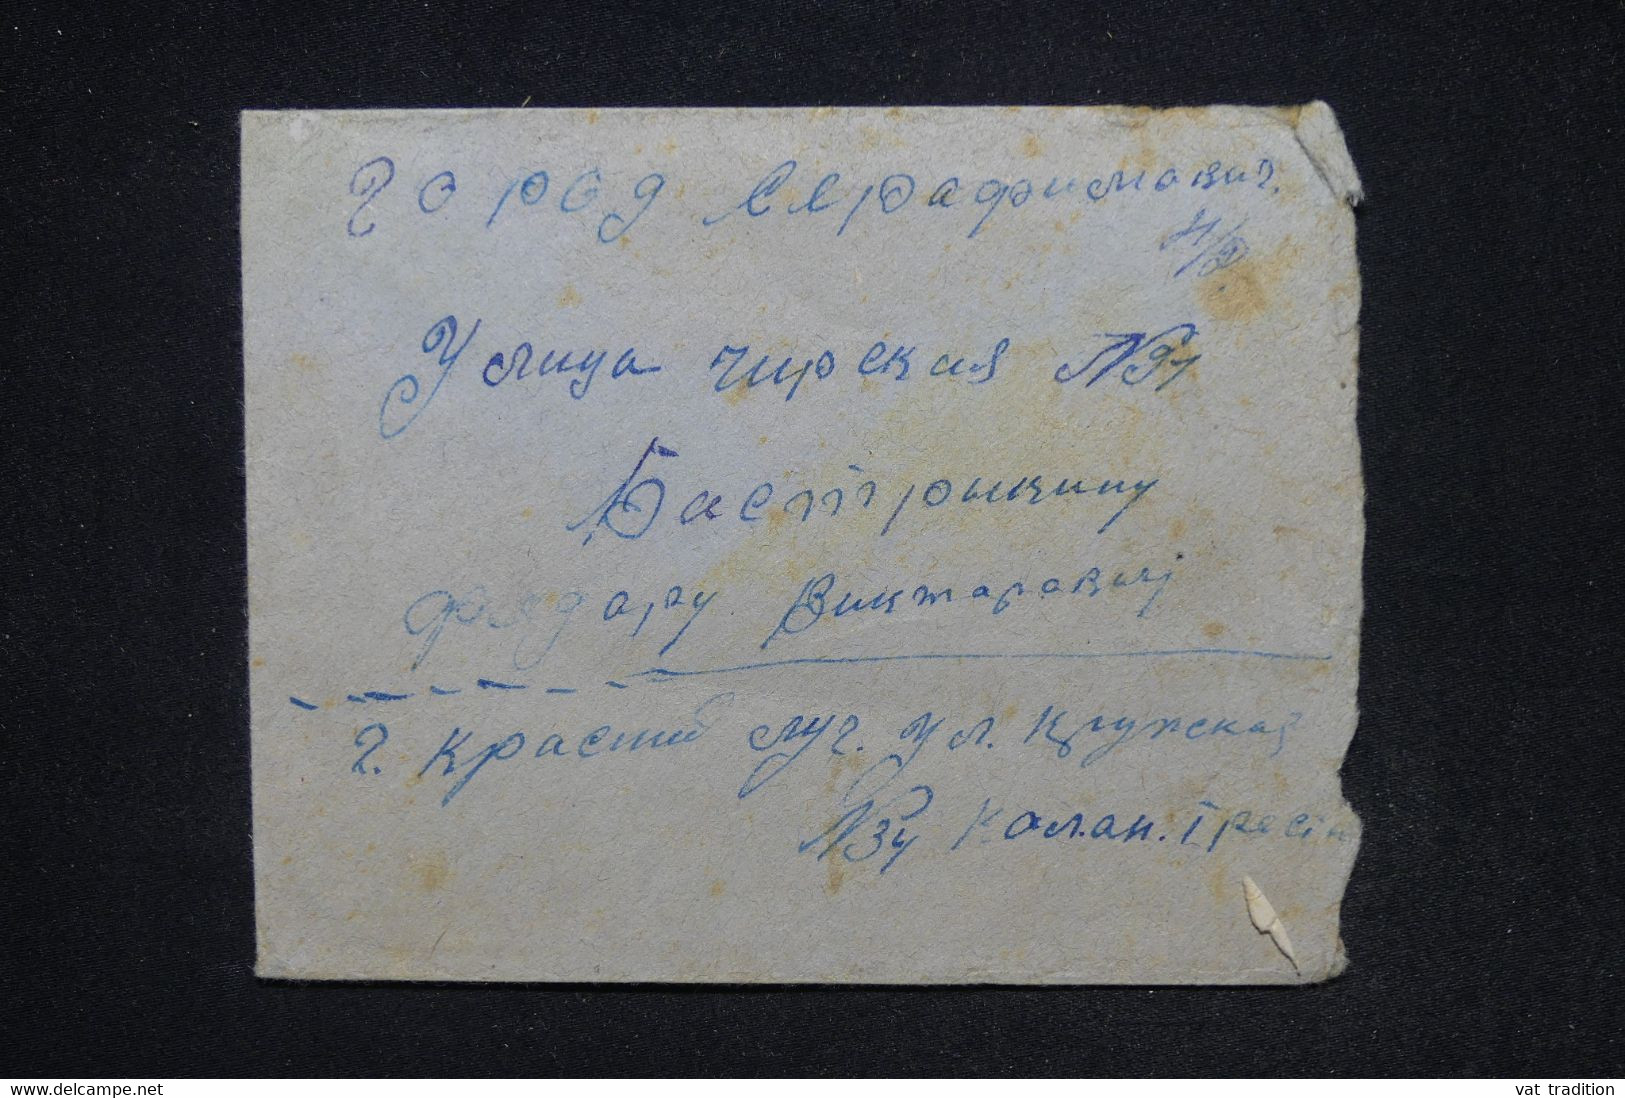 город Серафимович.
Улица чирская №91
Бастрыкину
Фядару Виктаравичу
г. Красный луч. Ул. Кружская
№34 Калан.
Delcampe.net
vat tradition